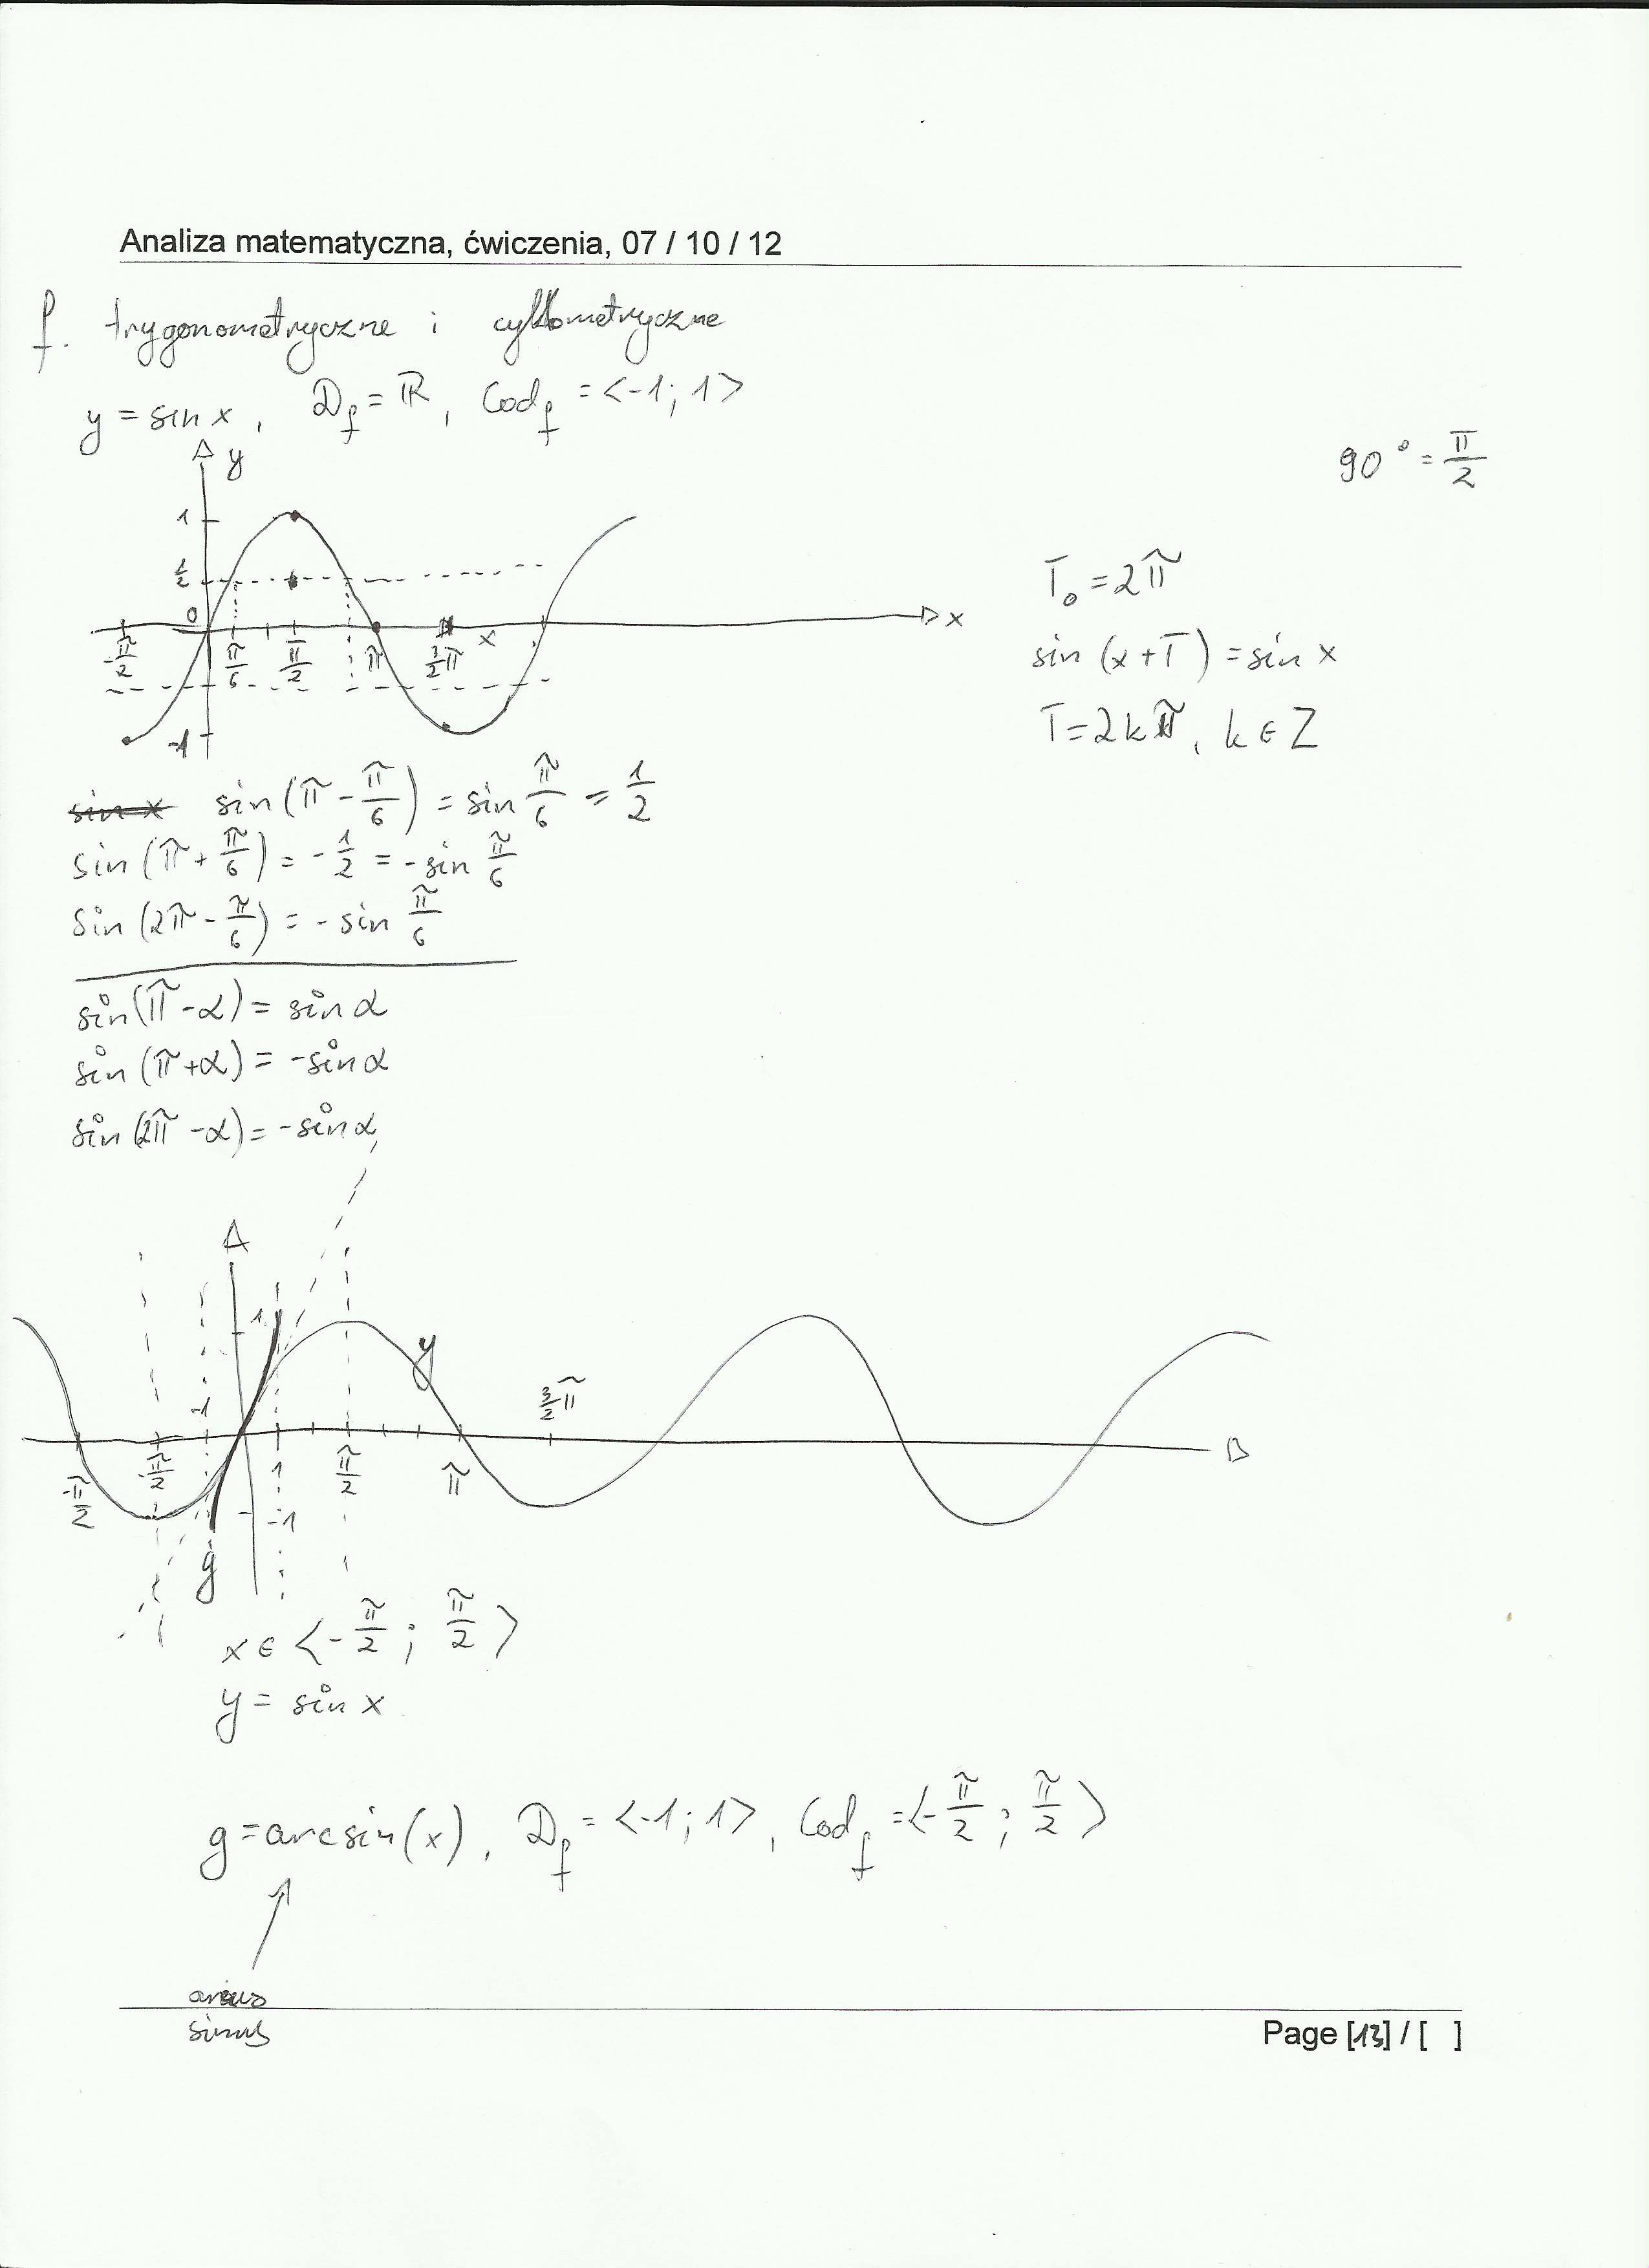 Analiza matematyczna, ćwiczenia, 07 / 10 / 12
f. trygonometryczne i cyklometryczne
y = sin x, D_f = ℝ, Cod_f = <-1; 1>
90° = π/2
y
1
1/2
0
x
-π/2 π/6 π/2 π 3/2 π x
-1
T₀ = 2π
sin (x + T) = sin x
T = 2kπ, k ∈ Z
sin x sin (π - π/6) = sin π/6 = 1/2
sin (π + π/6) = - 1/2 = - sin π/6
sin (2π - π/6) = - sin π/6
sin (π - α) = sin α
sin (π + α) = - sin α
sin (2π - α) = - sin α
1
y
-1
3/2 π
-π/2 -π/2 1 π/2 π
-1
g
x ∈ <- π/2 ; π/2 >
y = sin x
g = arcsin(x), D_f = <-1; 1>, Cod_f = <- π/2 ; π/2 >
arcus
sinus
Page [13] / [ ]